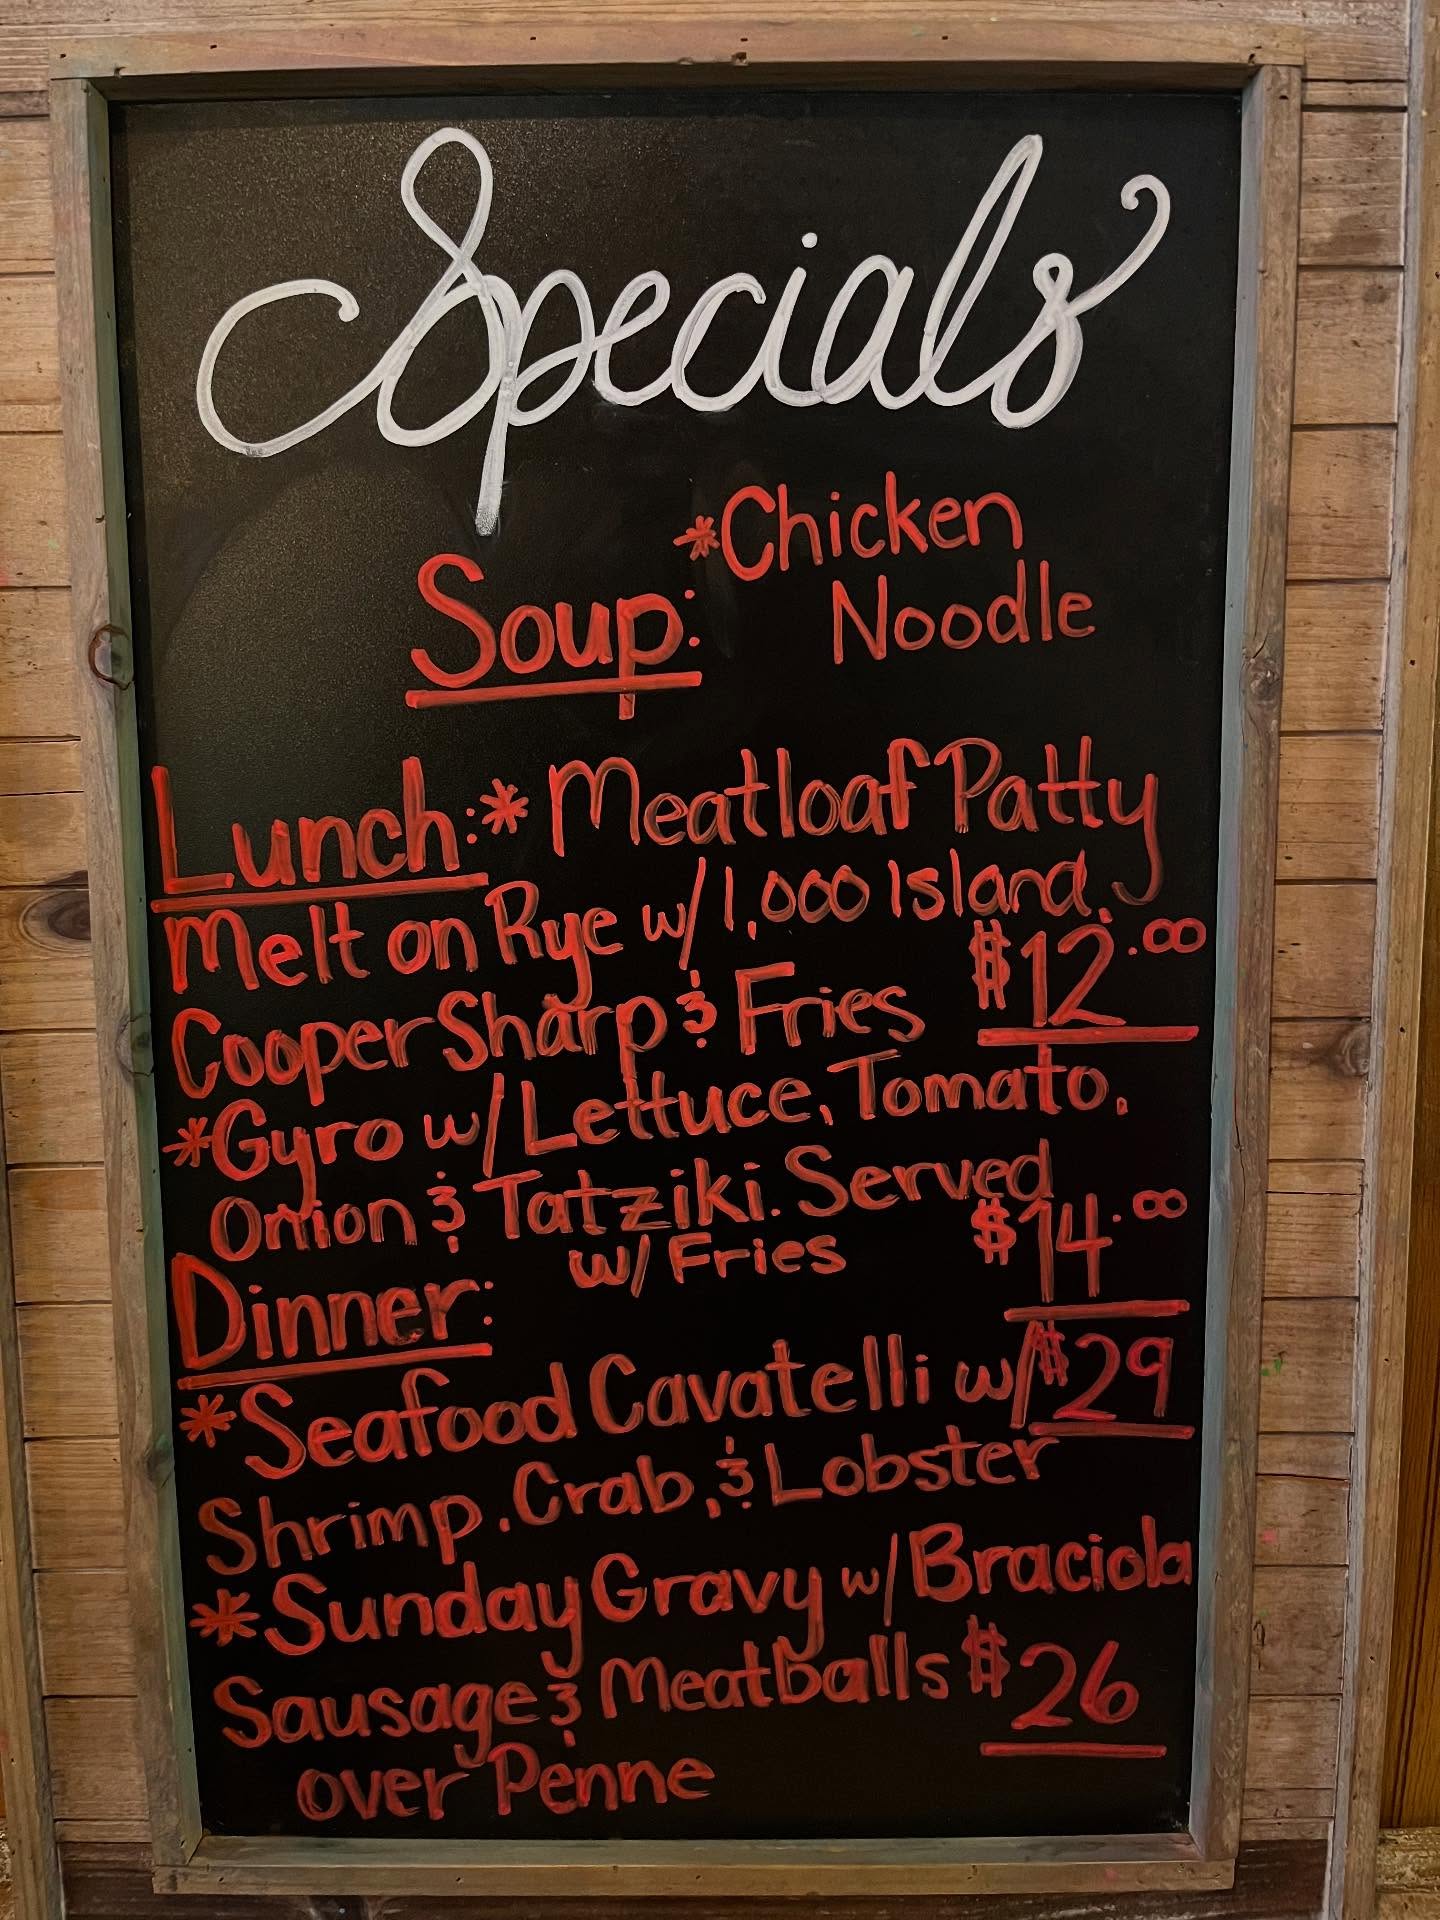 Specials
*Chicken
Soup: Noodle
Lunch: * Meatloaf Patty
Melt on Rye w/ 1,000 Island,
Cooper Sharp & Fries $12.00
*Gyro w/ Lettuce, Tomato,
Onion & Tatziki. Served
w/ Fries $14.00
Dinner:
*Seafood Cavatelli w/ $29
Shrimp, Crab, & Lobster
*Sunday Gravy w/ Braciola
Sausage & Meatballs $26
over Penne